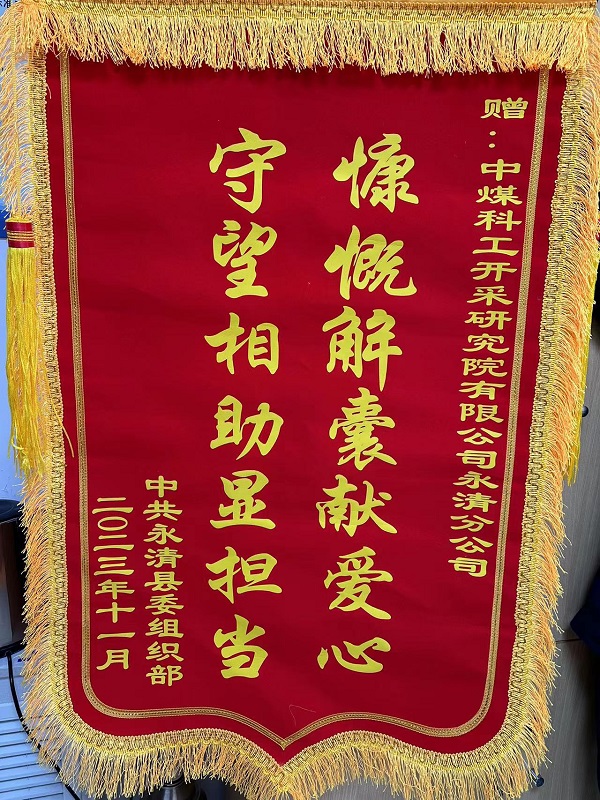 赠：中煤科工开采研究院有限公司永清分公司
慷慨解囊献爱心
守望相助显担当
中共永清县委组织部
二〇二三年十一月